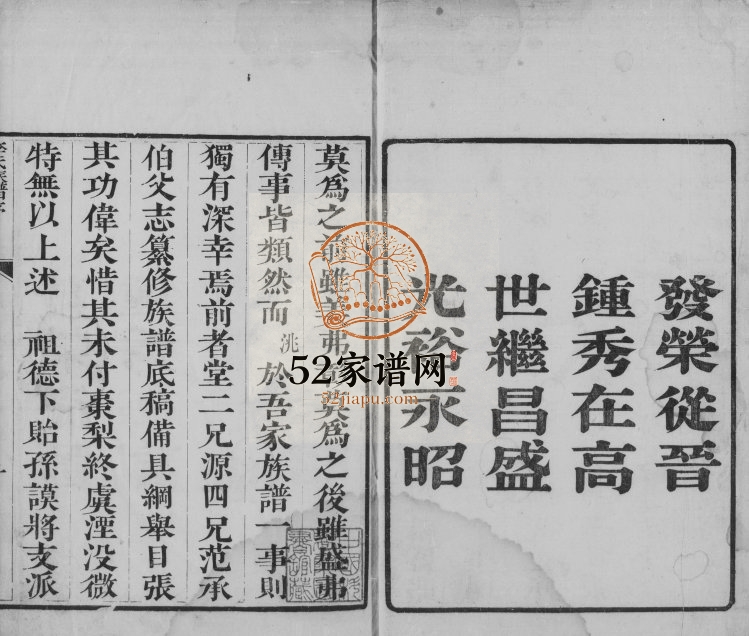 發榮從晉
鍾秀在高
世繼昌盛
光裕永昭
莫爲之前雖美弗 莫爲之後雖盛弗
傳事皆類然而洮於吾家族譜一事則
獨有深幸焉前者堂二兄源四兄范承
伯父志纂修族譜底稿備具綱舉目張
其功偉矣惜其未付棗梨終虞湮没微
特無以上述 祖德下貽孫謨將支派
52家谱网
52jiapu.com